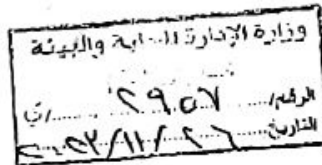 وزارة الإدارة المحلية والبيئة
الرقم/ ٢٩٥٧ /ق
التاريخ ٢٠٢٣/١١/٢٦